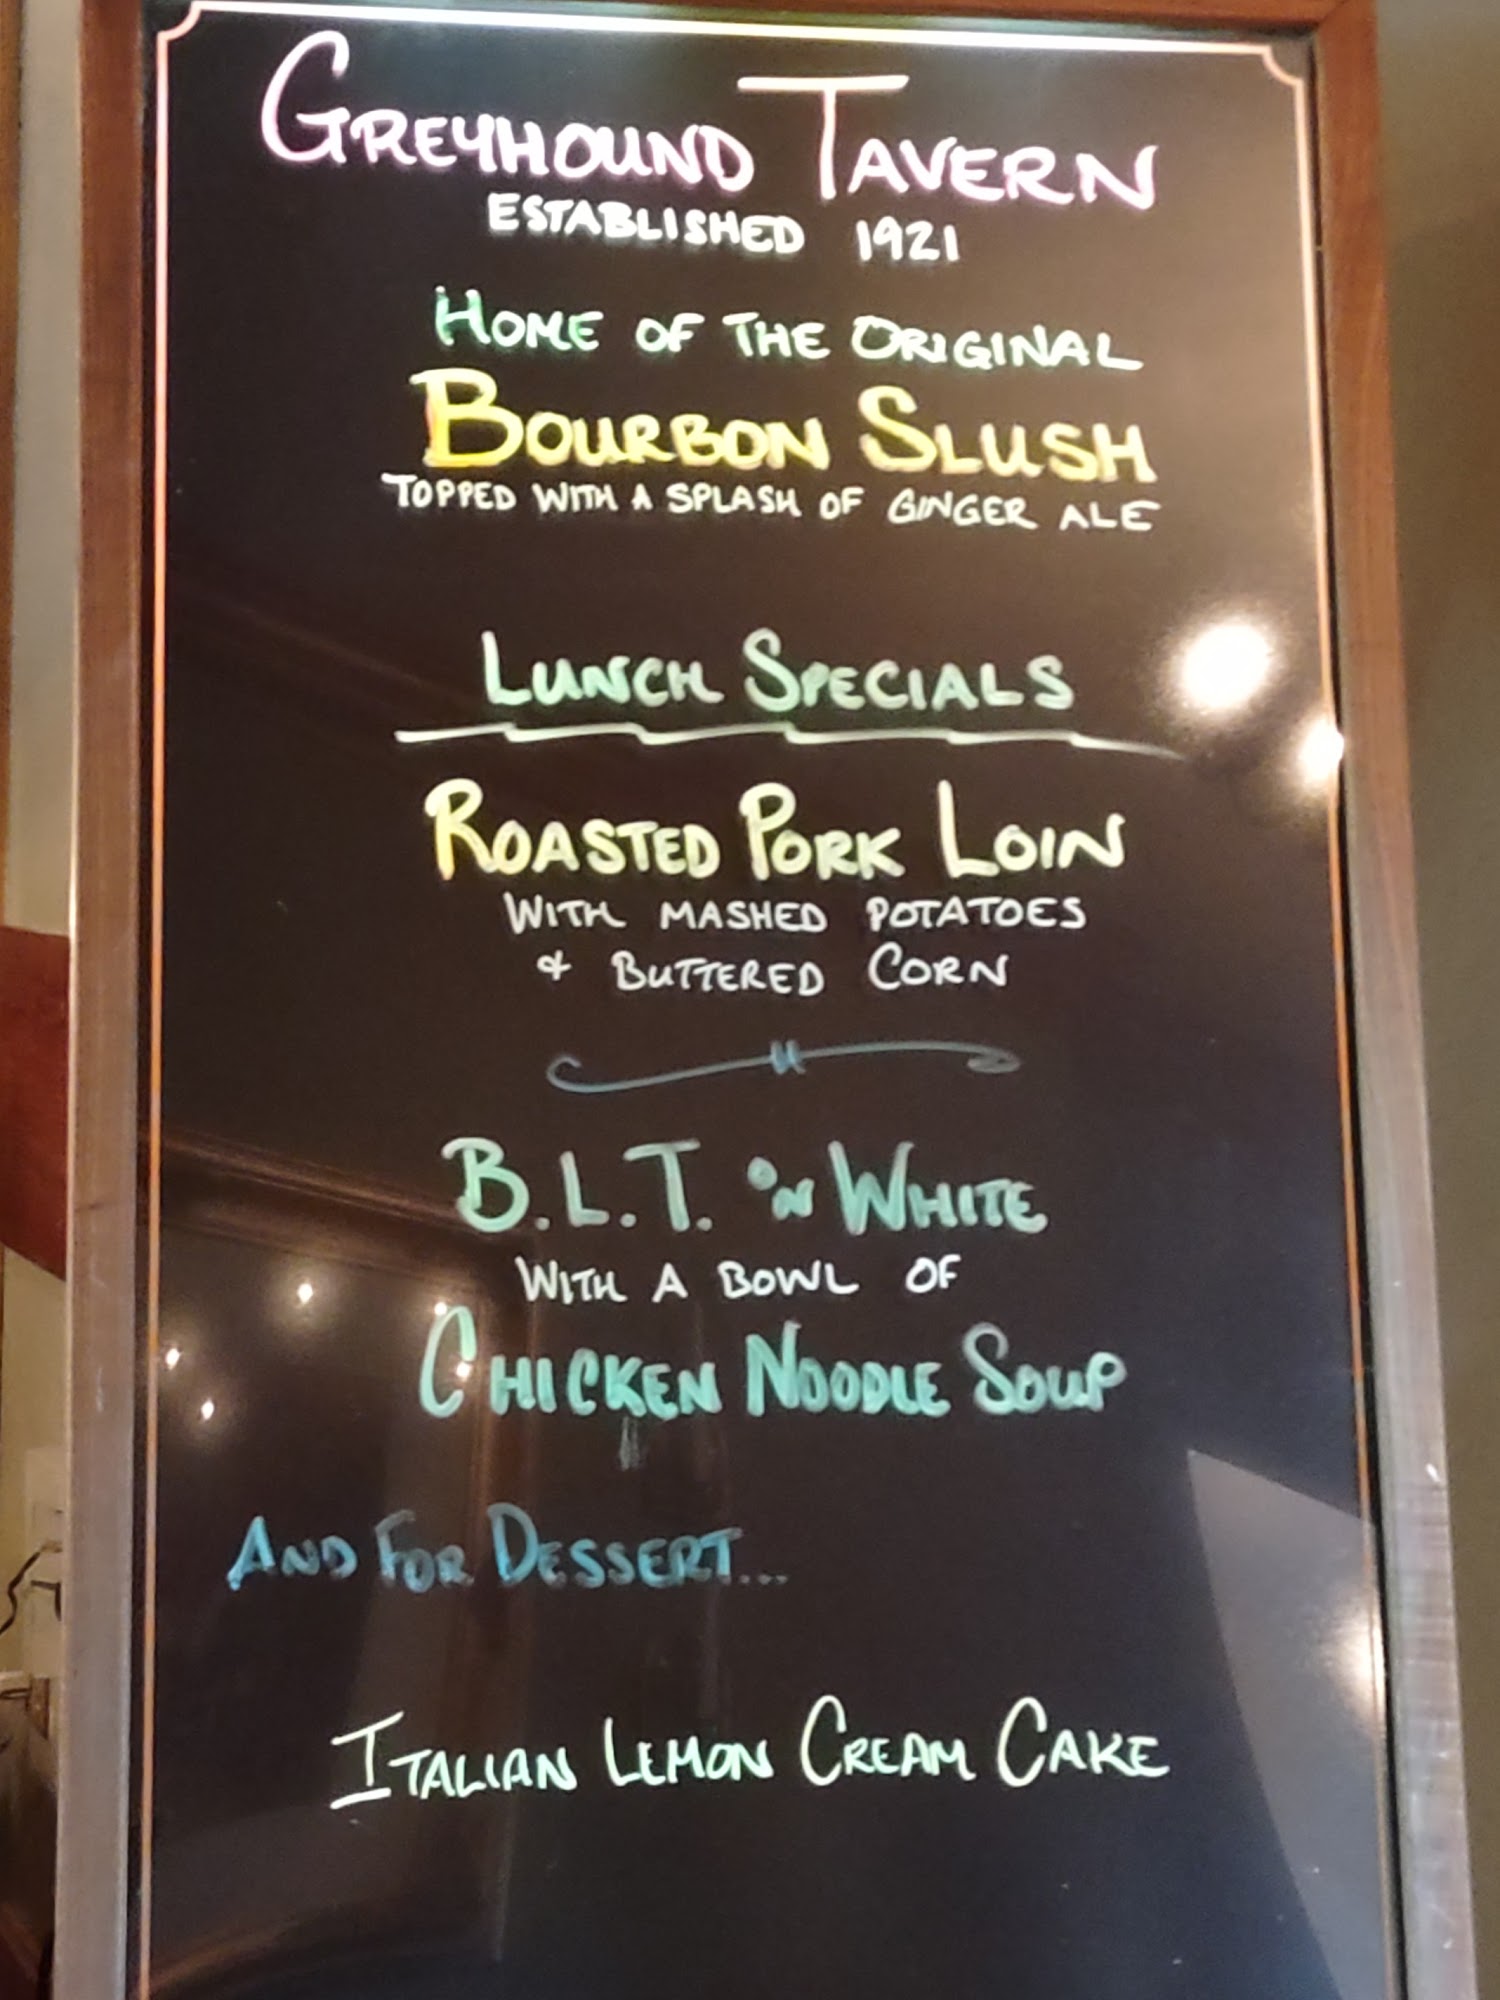 GREYHOUND TAVERN
ESTABLISHED 1921
HOME OF THE ORIGINAL
BOURBON SLUSH
TOPPED WITH A SPLASH OF GINGER ALE
LUNCH SPECIALS
ROASTED PORK LOIN
WITH MASHED POTATOES
& BUTTERED CORN
B.L.T. ON WHITE
WITH A BOWL OF
CHICKEN NOODLE SOUP
AND FOR DESSERT...
ITALIAN LEMON CREAM CAKE